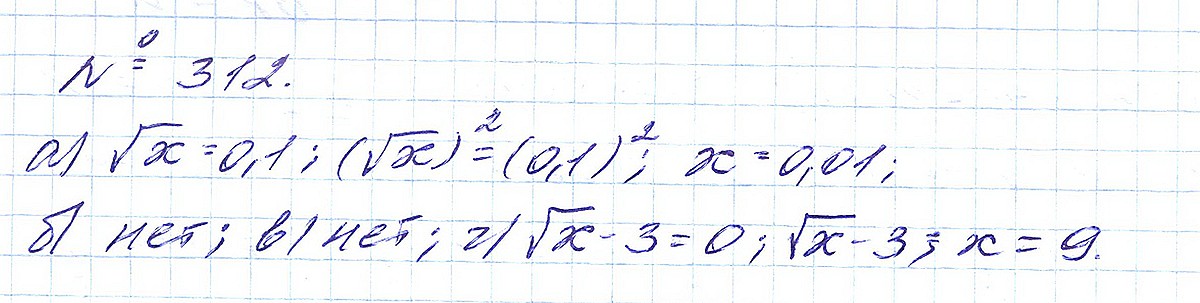 № 312.
а) √x = 0,1; (√x)² = (0,1)²; x = 0,01;
б) нет; в) нет; г) √x - 3 = 0; √x - 3; x = 9.